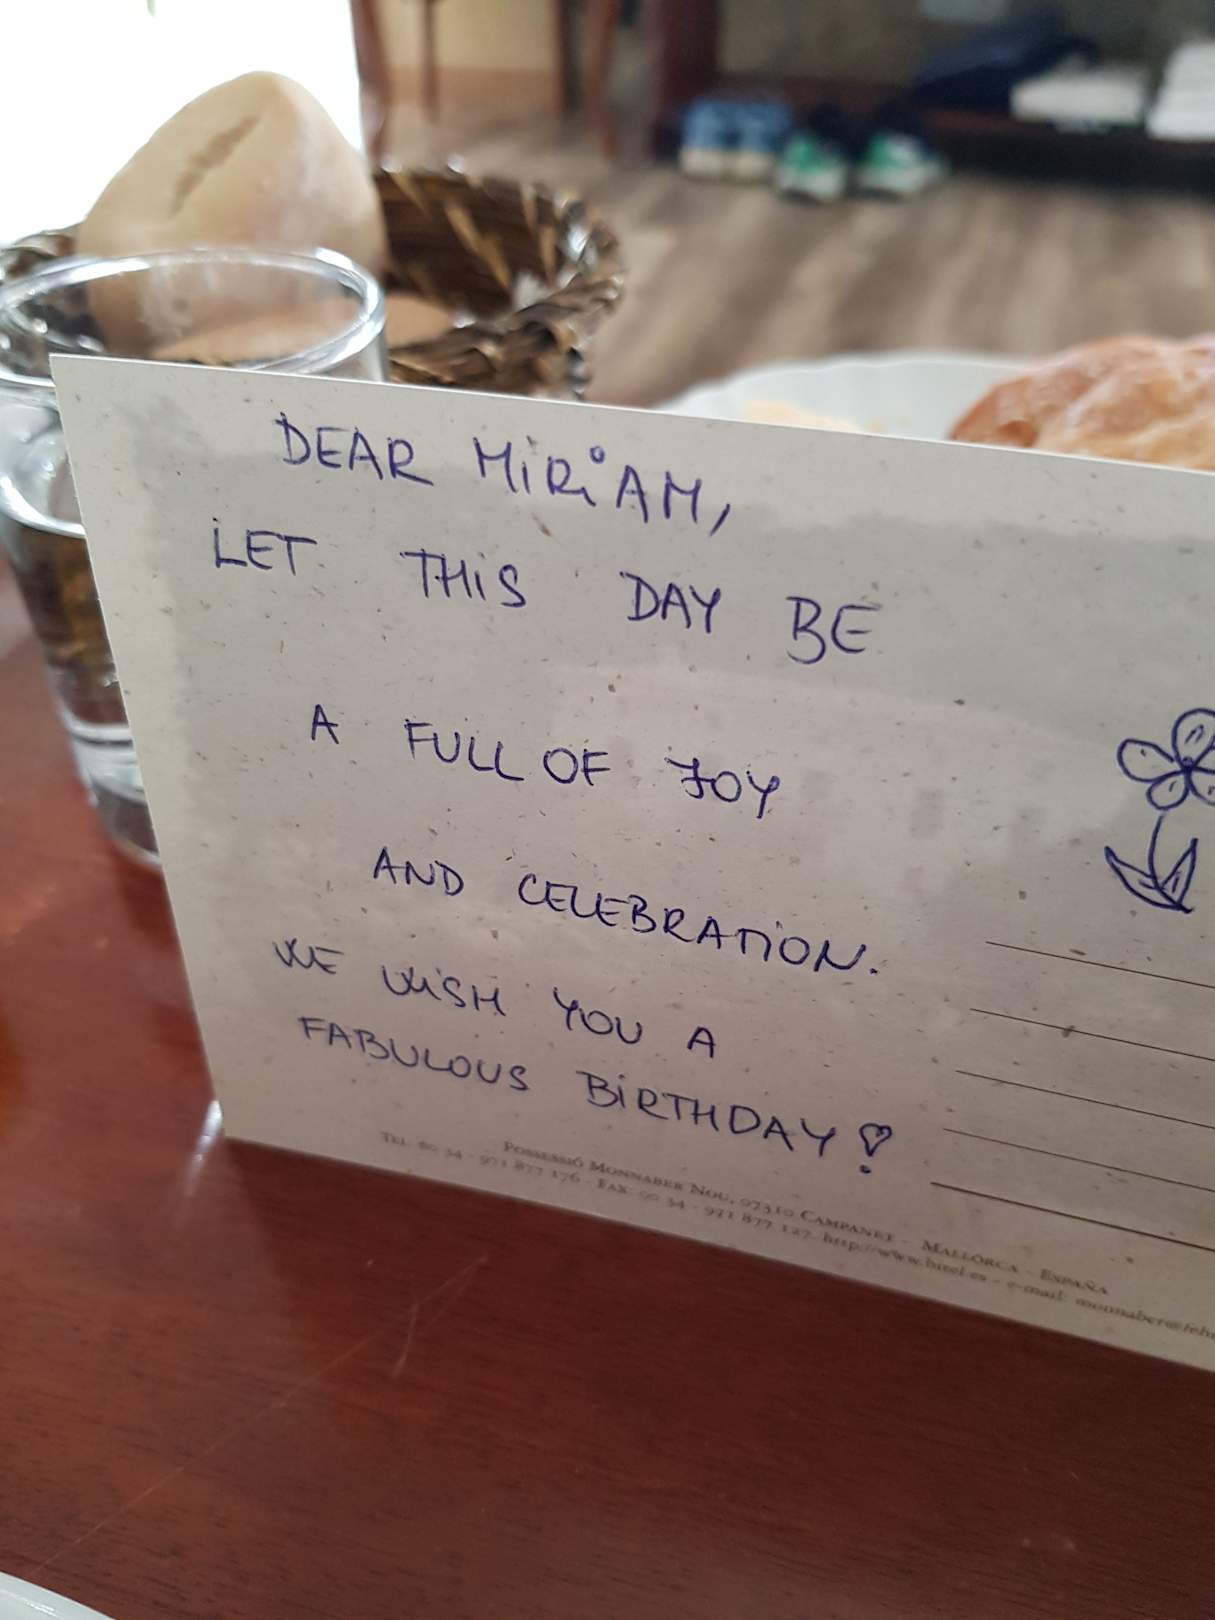 DEAR MiRiAM,
LET THiS DAY BE
A FULL OF JOY
AND CELEBRATION.
WE WiSH YOU A
FABULOUS BiRTHDAY!
Possessió Monnaber Nou, 07310 Campanet - Mallorca - España
Tel. 00 34 - 971 877 176 - Fax 00 34 - 971 877 127 http://www. - e-mail: